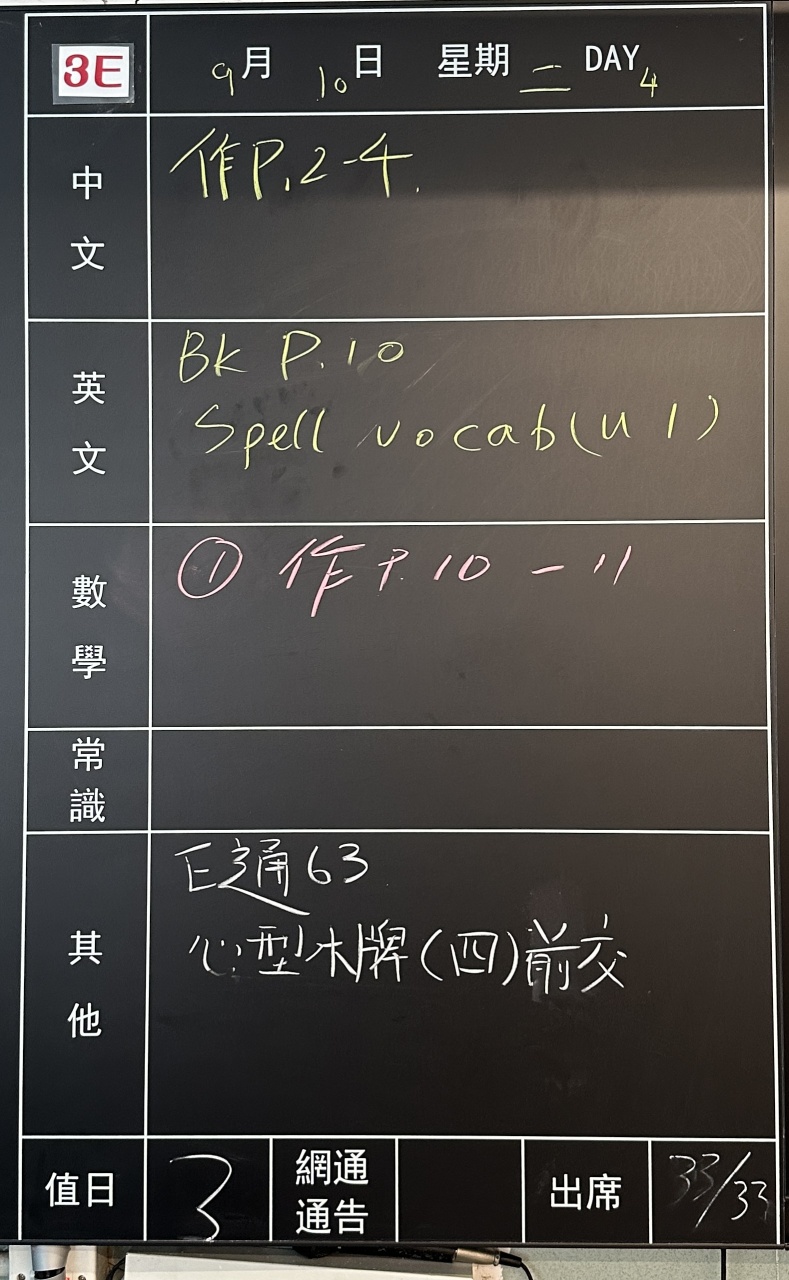 3E 9月10日 星期二 DAY 4
中文
作P.2-4.
英文
Bk P.10
Spell Vocab (U1)
數學
① 作P.10-11
常識
其他
通63
心型木牌(四)前交
值日 3 網通通告 出席 33/33